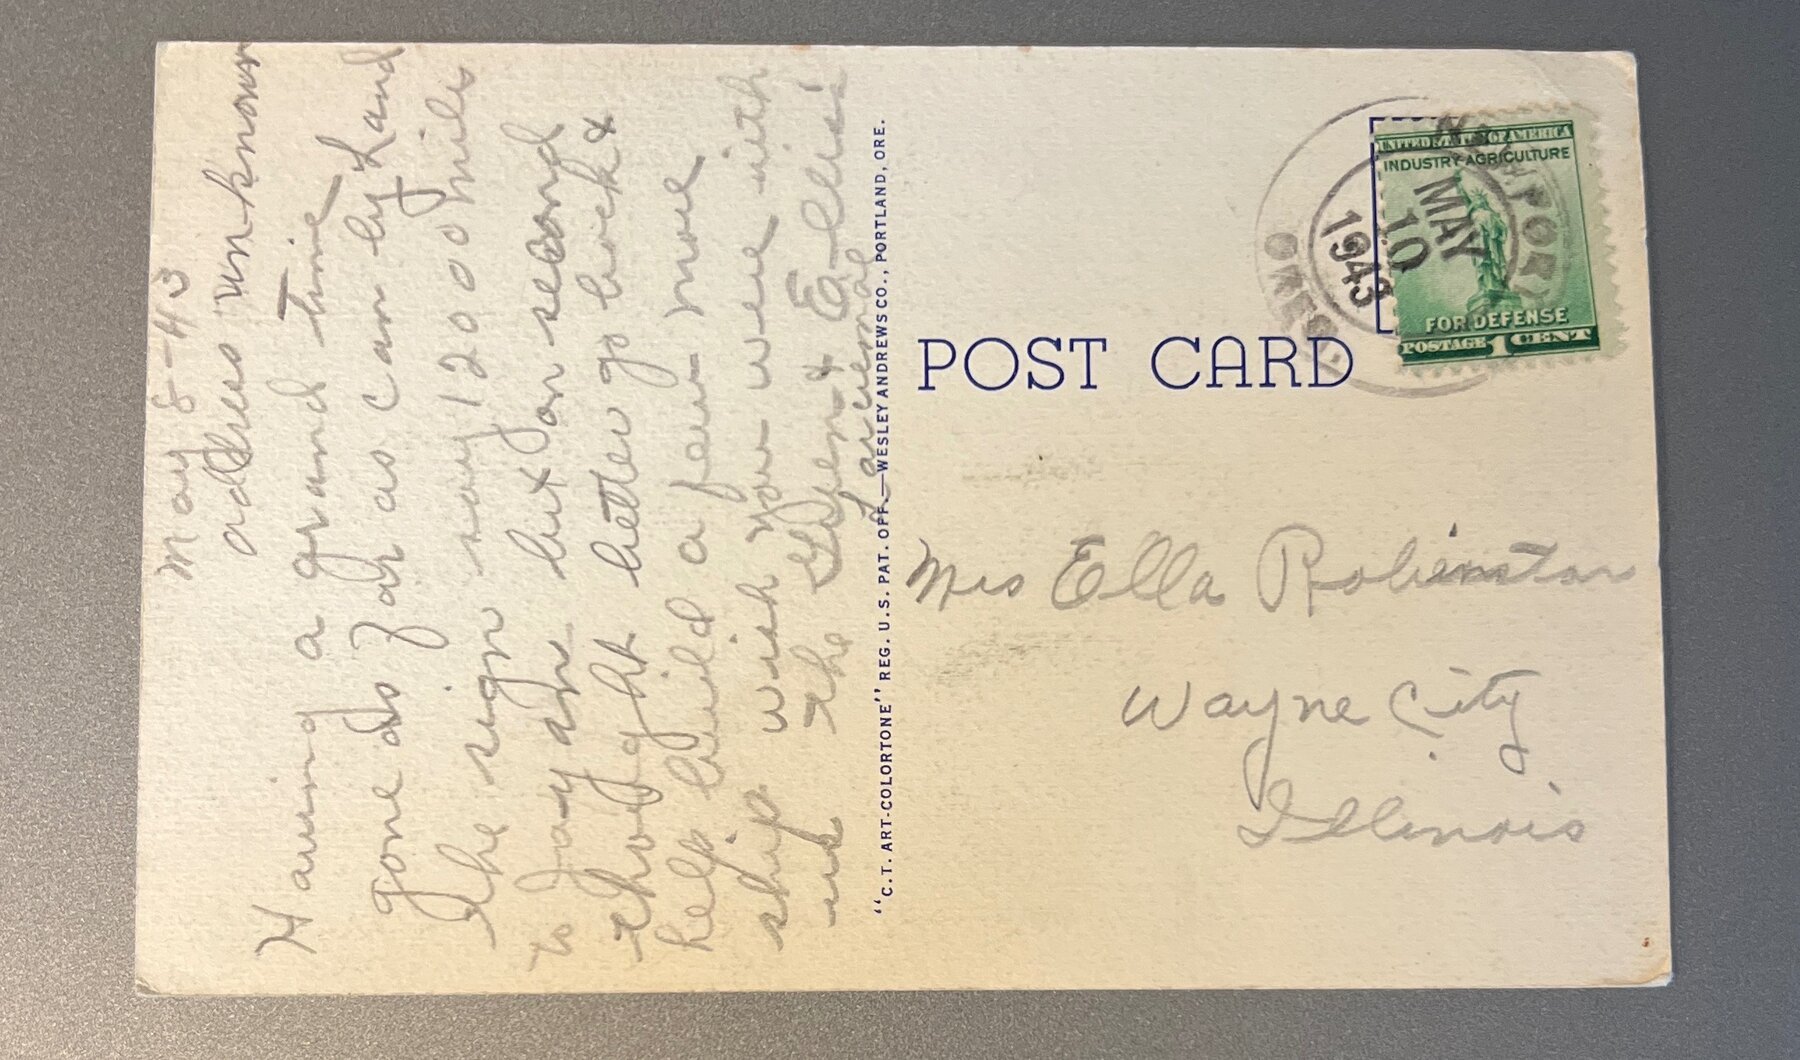 May 8-43
address unknown
Having a grand time
gone as far as can by Land
The sign say 12000 miles
to Japan but on second
thought better go back &
help build a few more
ship wish you were with
us the & Ellis'
"C.T. ART-COLORTONE" REG. U.S. PAT. OFF.—WESLEY ANDREWS CO., PORTLAND, ORE.
POST CARD
NEWPORT
MAY
10
1943
OREG.
UNITED STATES OF AMERICA
INDUSTRY-AGRICULTURE
FOR DEFENSE
POSTAGE 1 CENT
Mrs Ella
Wayne City
Illinois